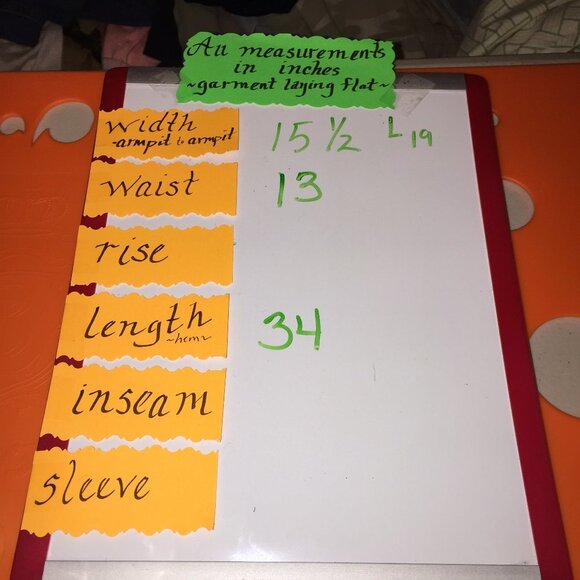 All measurements
in inches
~garment laying flat~
Width 15 1/2 L 19
~armpit to armpit
Waist 13
rise
length 34
~hem~
inseam
sleeve